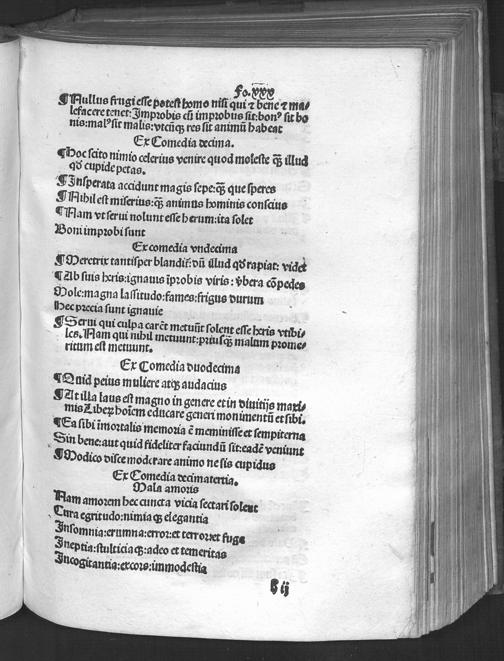 Fo.xxx
¶Nullus frugi esse potest homo nisi qui ⁊ bene ⁊ ma⸗
lefacere tenet: Improbis cū improbus sit: bonꝰ sit bo
nis: malꝰ sit malis: vtcūꝗ res sit animū habeat
Ex Comedia decima.
¶Hoc scito nimio celerius venire quod moleste ꝗ̄ illud
qḋ cupide petas.
¶Insperata accidunt magis sepe: ꝗ̄ que speres
¶Nihil est miserius: ꝗ̄ animus hominis conscius
¶Nam vt serui nolunt esse herum: ita solet
Boni improbi sunt
Ex comedia vndecima
¶Meretrix tantisper blandiť: dū illud qḋ rapiat: videt
¶Ab suis heris: ignauis īprobis viris: vbera cōpedes
Mole: magna lassitudo: fames: frigus durum
Hec precia sunt ignauie
¶Serui qui culpa carēt metuūt solent esse heris vtibi⸗
les. Nam qui nihil metuunt: priusꝗ̄ malum prome⸗
ritum est metuunt.
Ex Comedia duodecima
¶Quid peius muliere atꝗ audacius
¶At illa laus est magno in genere et in diuitijs maxi⸗
mis Liberꝭ hoīem educare generi monimentū et sibi.
¶Ea sibi īmortalis memoria ē meminisse et sempiterna
Sin bene: aut quid fideliter faciundū sit: eadē veniunt
¶Modico disce moderare animo ne sis cupidus
Ex Comedia decimatertia.
Mala amoris
Nam amorem hec cuncta vicia sectari solent
Cura egritudo: nimia ꝗ elegantia
Insomnia: erumna: error: et terror: et fuga
Ineptia: stulticia ꝗ: adeo et temeritas
Incogitantia: excors: immodestia
h ij